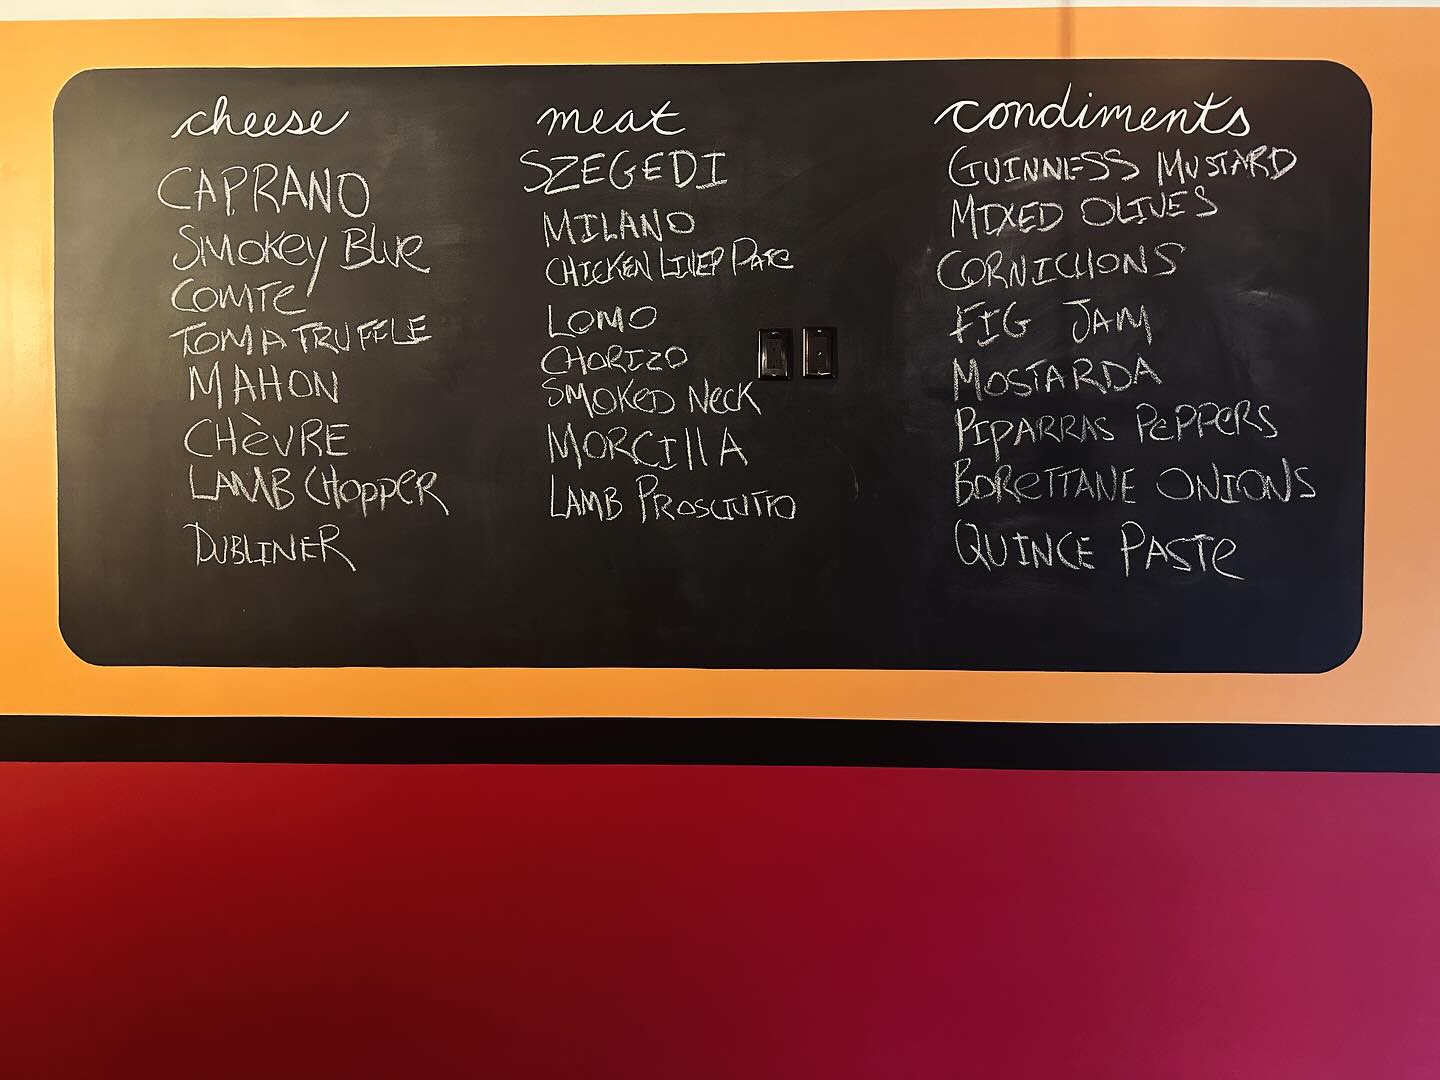 cheese
CAPRANO
SMOKEY BLUE
COMTE
TOMA TRUFFLE
MAHON
CHÈVRE
LAMB CHOPPER
DUBLINER
meat
SZEGEDI
MILANO
CHICKEN LIVER PATE
LOMO
CHORIZO
SMOKED NECK
MORCILLA
LAMB PROSCIUTTO
condiments
GUINNESS MUSTARD
MIXED OLIVES
CORNICHONS
FIG JAM
MOSTARDA
PIPARRAS PEPPERS
BORETTANE ONIONS
QUINCE PASTE